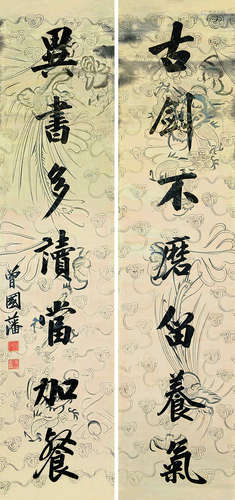 古劍不磨留養氣
異書多讀當加餐
曾國藩